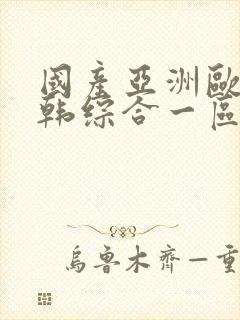 國產亞洲歐
韩综合一區
烏鲁木齊—重